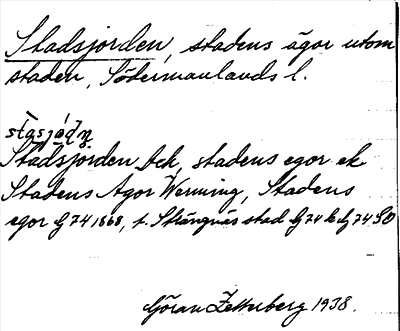 Stadsjorden, stadens ägor utom
staden, Södermanlands l.
Stadsjorden bch, stadens egor ek
Stadens Ägor Werming, Stadens
egor Gj 74 1868, t. Strängnäs stad Gj 74 k Gj 74 SO
Göran Zetterberg 1938.